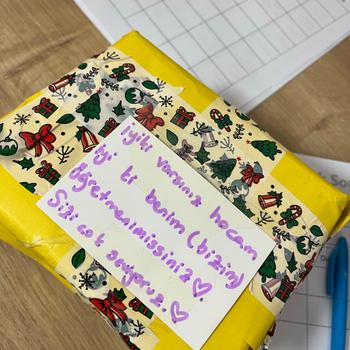 iyki varsınız hocam
iyi ki benim (bizim)
öğretmenimissiniz ♡.
Sizi çok seviyoruz. ♡